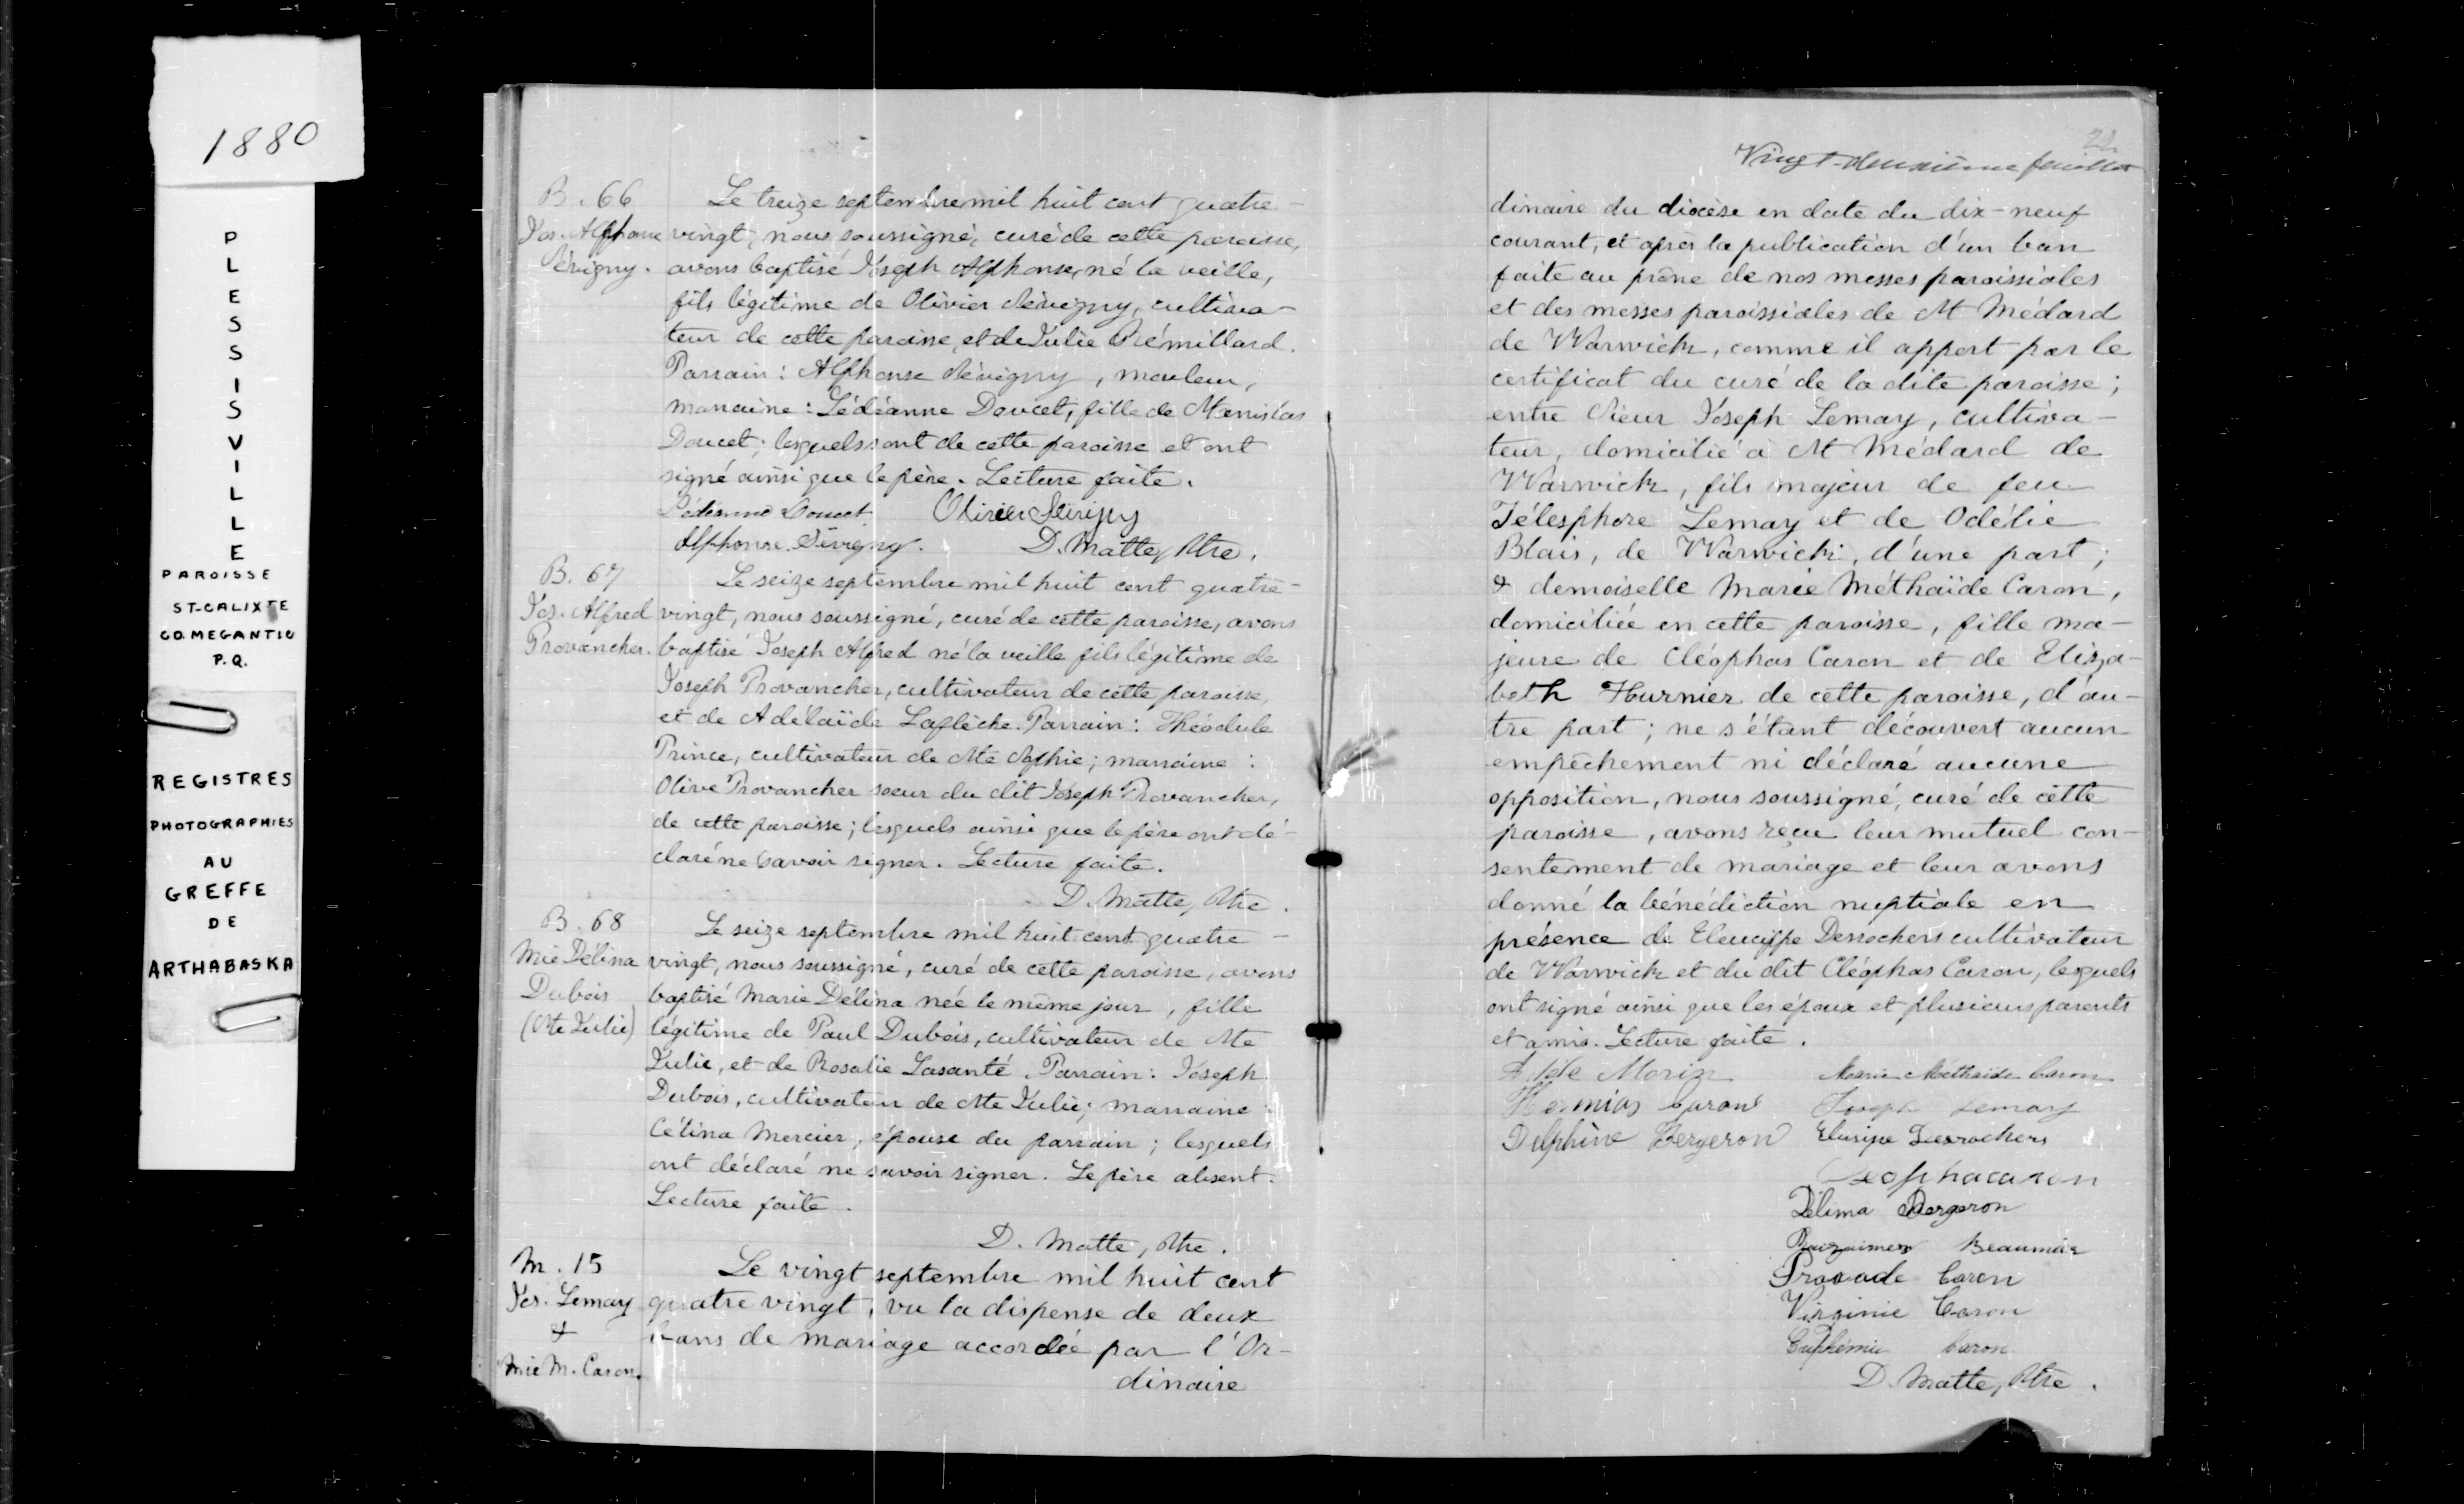 1880
PLESSISVILLE
PAROISSE
ST-CALIXTE
CO. MEGANTIC
P.Q.
REGISTRES
PHOTOGRAPHIES
AU
GREFFE
DE
ARTHABASKA
B. 66
Jos. Alphonse
Sévigny.
Le treize septembre mil huit cent quatre-
vingt, nous soussigné, curé de cette paroisse,
avons baptisé Joseph Alphonse, né la veille,
fils légitime de Olivier Sévigny, cultiva-
teur de cette paroisse, et de Julie Trémillard.
Parrain: Alphonse Sévigny, mouleur,
marraine: Lédéanne Doucet, fille de Stanislas
Doucet; lesquels sont de cette paroisse et ont
signé ainsi que le père. Lecture faite.
Lédéanne Doucet Olivier Sévigny
Alphonse Sévigny. D. Matte, Ptre.
B. 67
Jos. Alfred
Provancher.
Le seize septembre mil huit cent quatre-
vingt, nous soussigné, curé de cette paroisse, avons
baptisé Joseph Alfred né la veille fils légitime de
Joseph Provancher, cultivateur de cette paroisse,
et de Adélaïde Laflèche. Parrain: Théodule
Prince, cultivateur de Ste Sophie; marraine:
Olive Provancher soeur du dit Joseph Provancher,
de cette paroisse; lesquels ainsi que le père ont dé-
claré ne savoir signer. Lecture faite.
D. Matte, Ptre.
B. 68
Mie Délina
Dubois
(Ste Julie)
Le seize septembre mil huit cent quatre-
vingt, nous soussigné, curé de cette paroisse, avons
baptisé Marie Délina née le même jour, fille
légitime de Paul Dubois, cultivateur de Ste
Julie, et de Rosalie Lasanté. Parrain: Joseph
Dubois, cultivateur de Ste Julie; marraine:
Célina Mercier, épouse du parrain; lesquels
ont déclaré ne savoir signer. Le père absent.
Lecture faite.
D. Matte, Ptre.
M. 15
Jos. Lemay
&
Mie M. Caron.
Le vingt septembre mil huit cent
quatre vingt, vu la dispense de deux
bans de mariage accordée par l'Or-
dinaire
22
Vingt-deuxième feuillet
dinaire du diocèse en date du dix-neuf
courant, et après la publication d'un ban
faite au prône de nos messes paroissiales
et des messes paroissiales de St Médard
de Warwick, comme il appert par le
certificat du curé de la dite paroisse;
entre Sieur Joseph Lemay, cultiva-
teur, domicilié à St Médard de
Warwick, fils majeur de feu
Télesphore Lemay et de Odélie
Blais, de Warwick, d'une part;
& demoiselle Marie Méthaïde Caron,
domiciliée en cette paroisse, fille ma-
jeure de Cléophas Caron et de Eliza-
beth Fournier de cette paroisse, d'au-
tre part; ne s'étant découvert aucun
empêchement ni déclaré aucune
opposition, nous soussigné, curé de cette
paroisse, avons reçu leur mutuel con-
sentement de mariage et leur avons
donné la bénédiction nuptiale en
présence de Eleucippe Desrochers cultivateur
de Warwick et du dit Cléophas Caron, lesquels
ont signé ainsi que les époux et plusieurs parents
et amis. Lecture faite.
Adèle Morin Marie Méthaïde Caron
Herminias Caron Joseph Lemay
Delphine Bergeron Elusipe Desrochers
Cleophacaron
Délima Bergeron
Beaumier
Caron
Virginie Caron
Euphémie Caron
D. Matte, Ptre.